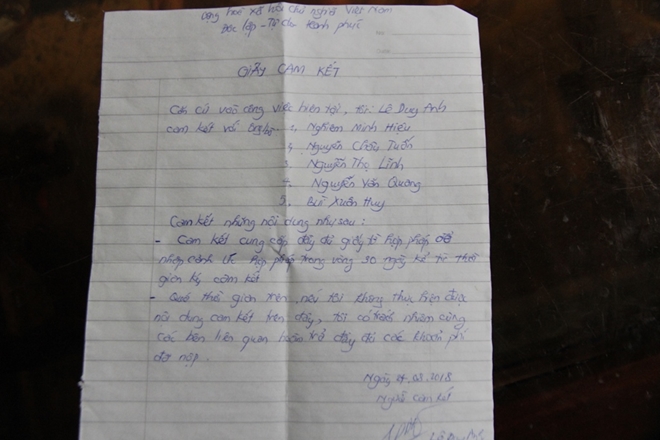 Cộng hoà xã hội chủ nghĩa Việt Nam
Độc lập - Tự do hạnh phúc
GIẤY CAM KẾT
Căn cứ vào công việc hiện tại, tôi: Lê Duy Anh
cam kết với ông bà 1, Nghiêm Minh Hiếu
2, Nguyễn Châu Tuấn
3. Nguyễn Thọ Lĩnh
4. Nguyễn Văn Quang
5. Bùi Xuân Huy
Cam kết những nội dung như sau:
- Cam kết cung cấp đầy đủ giấy tờ hợp pháp để
nhập cảnh Úc hợp pháp trong vòng 30 ngày kể từ thời
gian ký cam kết
- Quá thời gian trên, nếu tôi không thực hiện được
nội dung cam kết trên đây, tôi có trách nhiệm cùng
các bên liên quan hoàn trả đầy đủ các khoản phí
đã nộp.
Ngày 03.2018
Người cam kết
Lê Duy Anh